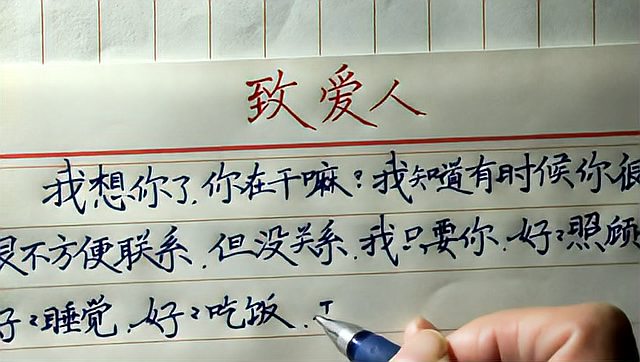 致爱人
我想你了.你在干嘛?我知道有时候你很
很不方便联系.但没关系.我只要你.好〻照顾
好〻睡觉.好〻吃饭.